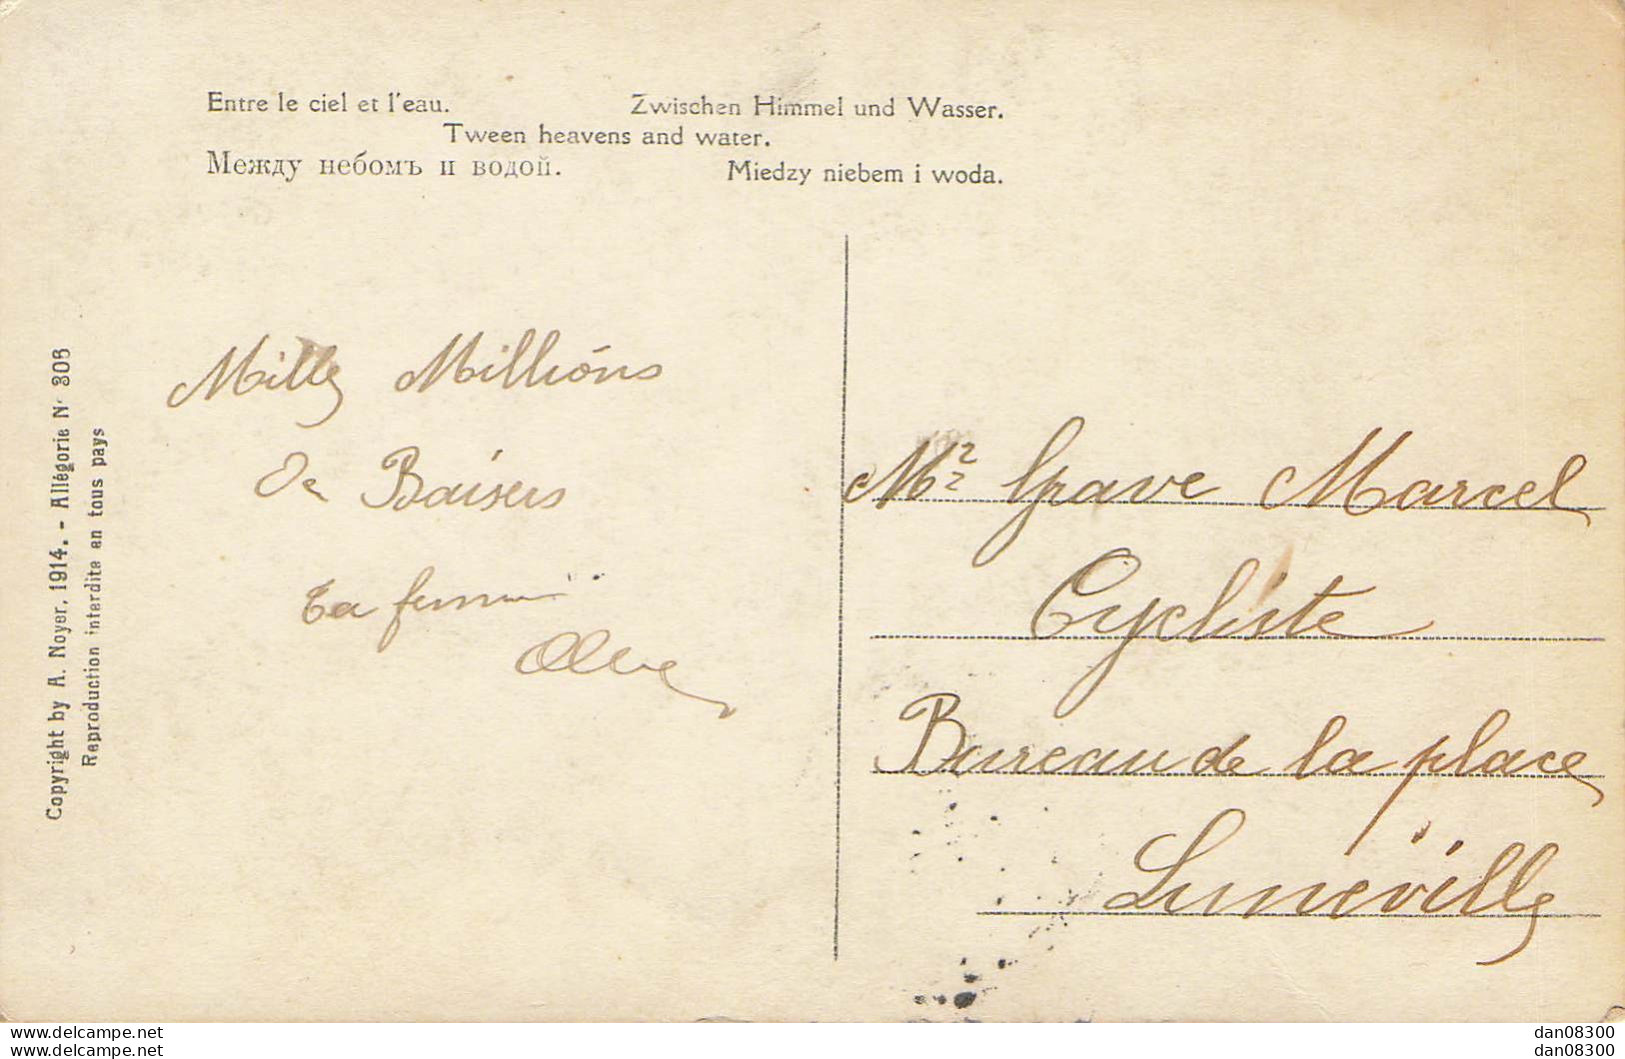 Entre le ciel et l'eau. Zwischen Himmel und Wasser.
Tween heavens and water.
Между небомъ и водой. Miedzy niebem i woda.
Copyright by A. Noyer. 1914. - Allégorie N° 306
Reproduction interdite en tous pays
Mille Millions
De Baisers
ta femme
Mr Grave Marcel
Cycliste
Bureau de la place
Lunéville
www.delcampe.net
www.delcampe.net
dan08300
dan08300